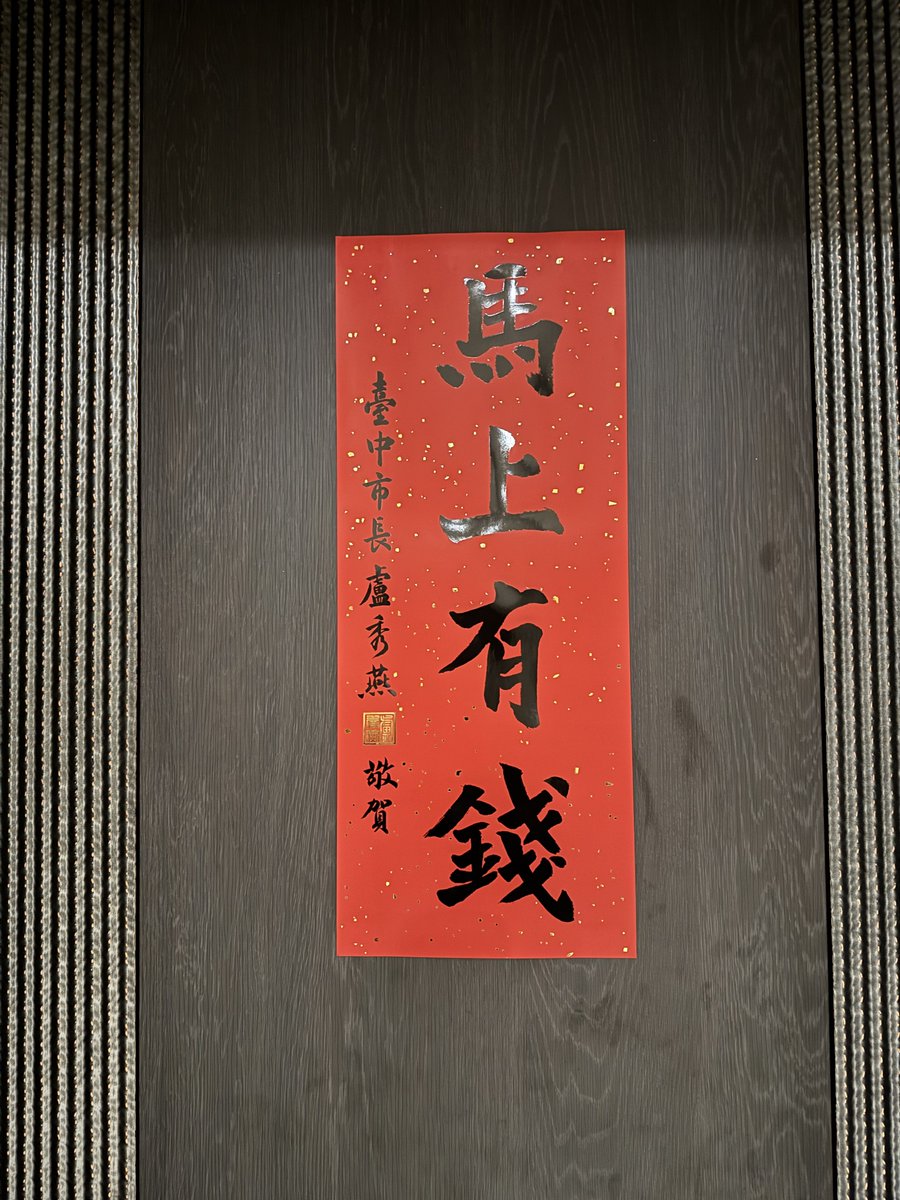 馬上有錢
臺中市長盧秀燕
敬賀